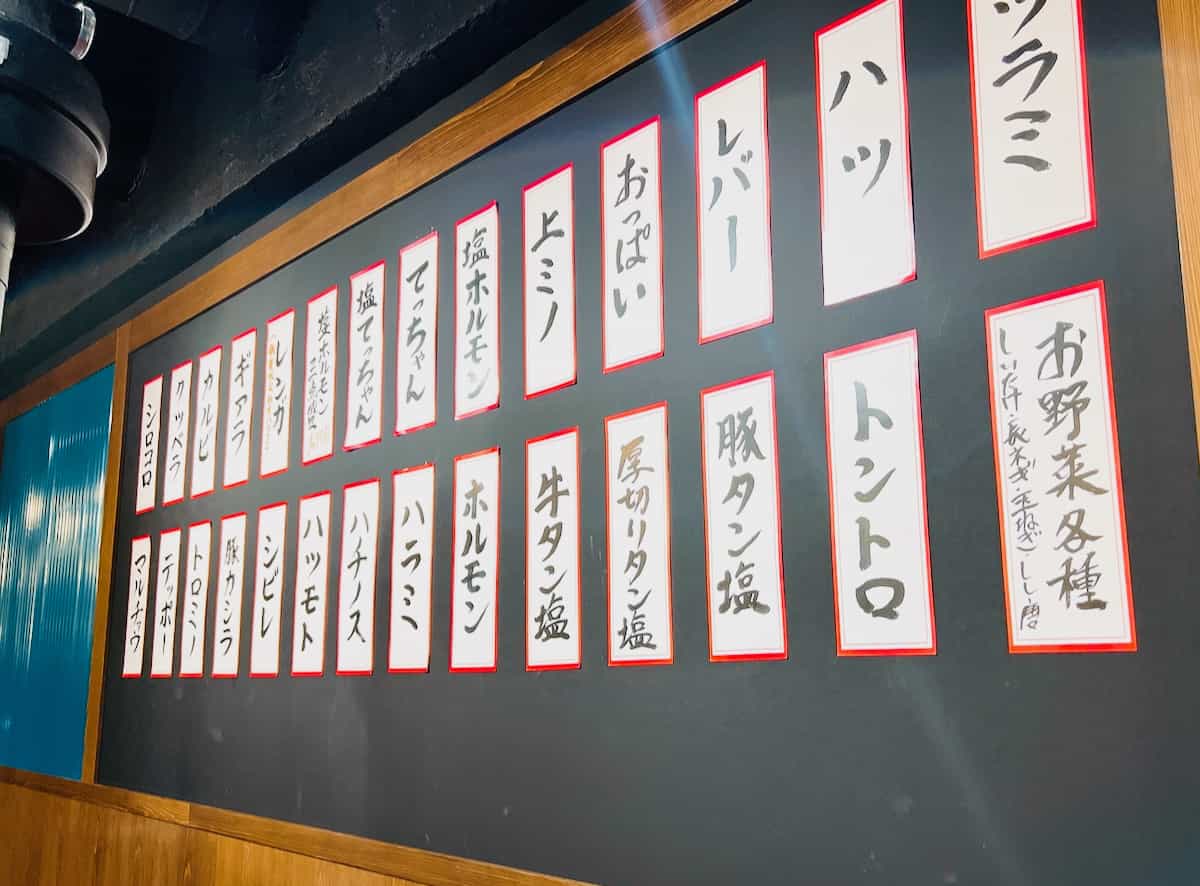 ツラミ
ハツ
レバー
おっぱい
上ミノ
塩ホルモン
てっちゃん
塩てっちゃん
ホルモン
レンガ
ギアラ
カルビ
クッペラ
シロコロ
お野菜各種
しいたけ・長ネギ・玉ねぎ・しし唐
トントロ
豚タン塩
厚切りタン塩
牛タン塩
ホルモン
ハラミ
ハチノス
ハツモト
シビレ
豚カシラ
トロミノ
テッポー
マルチョウ